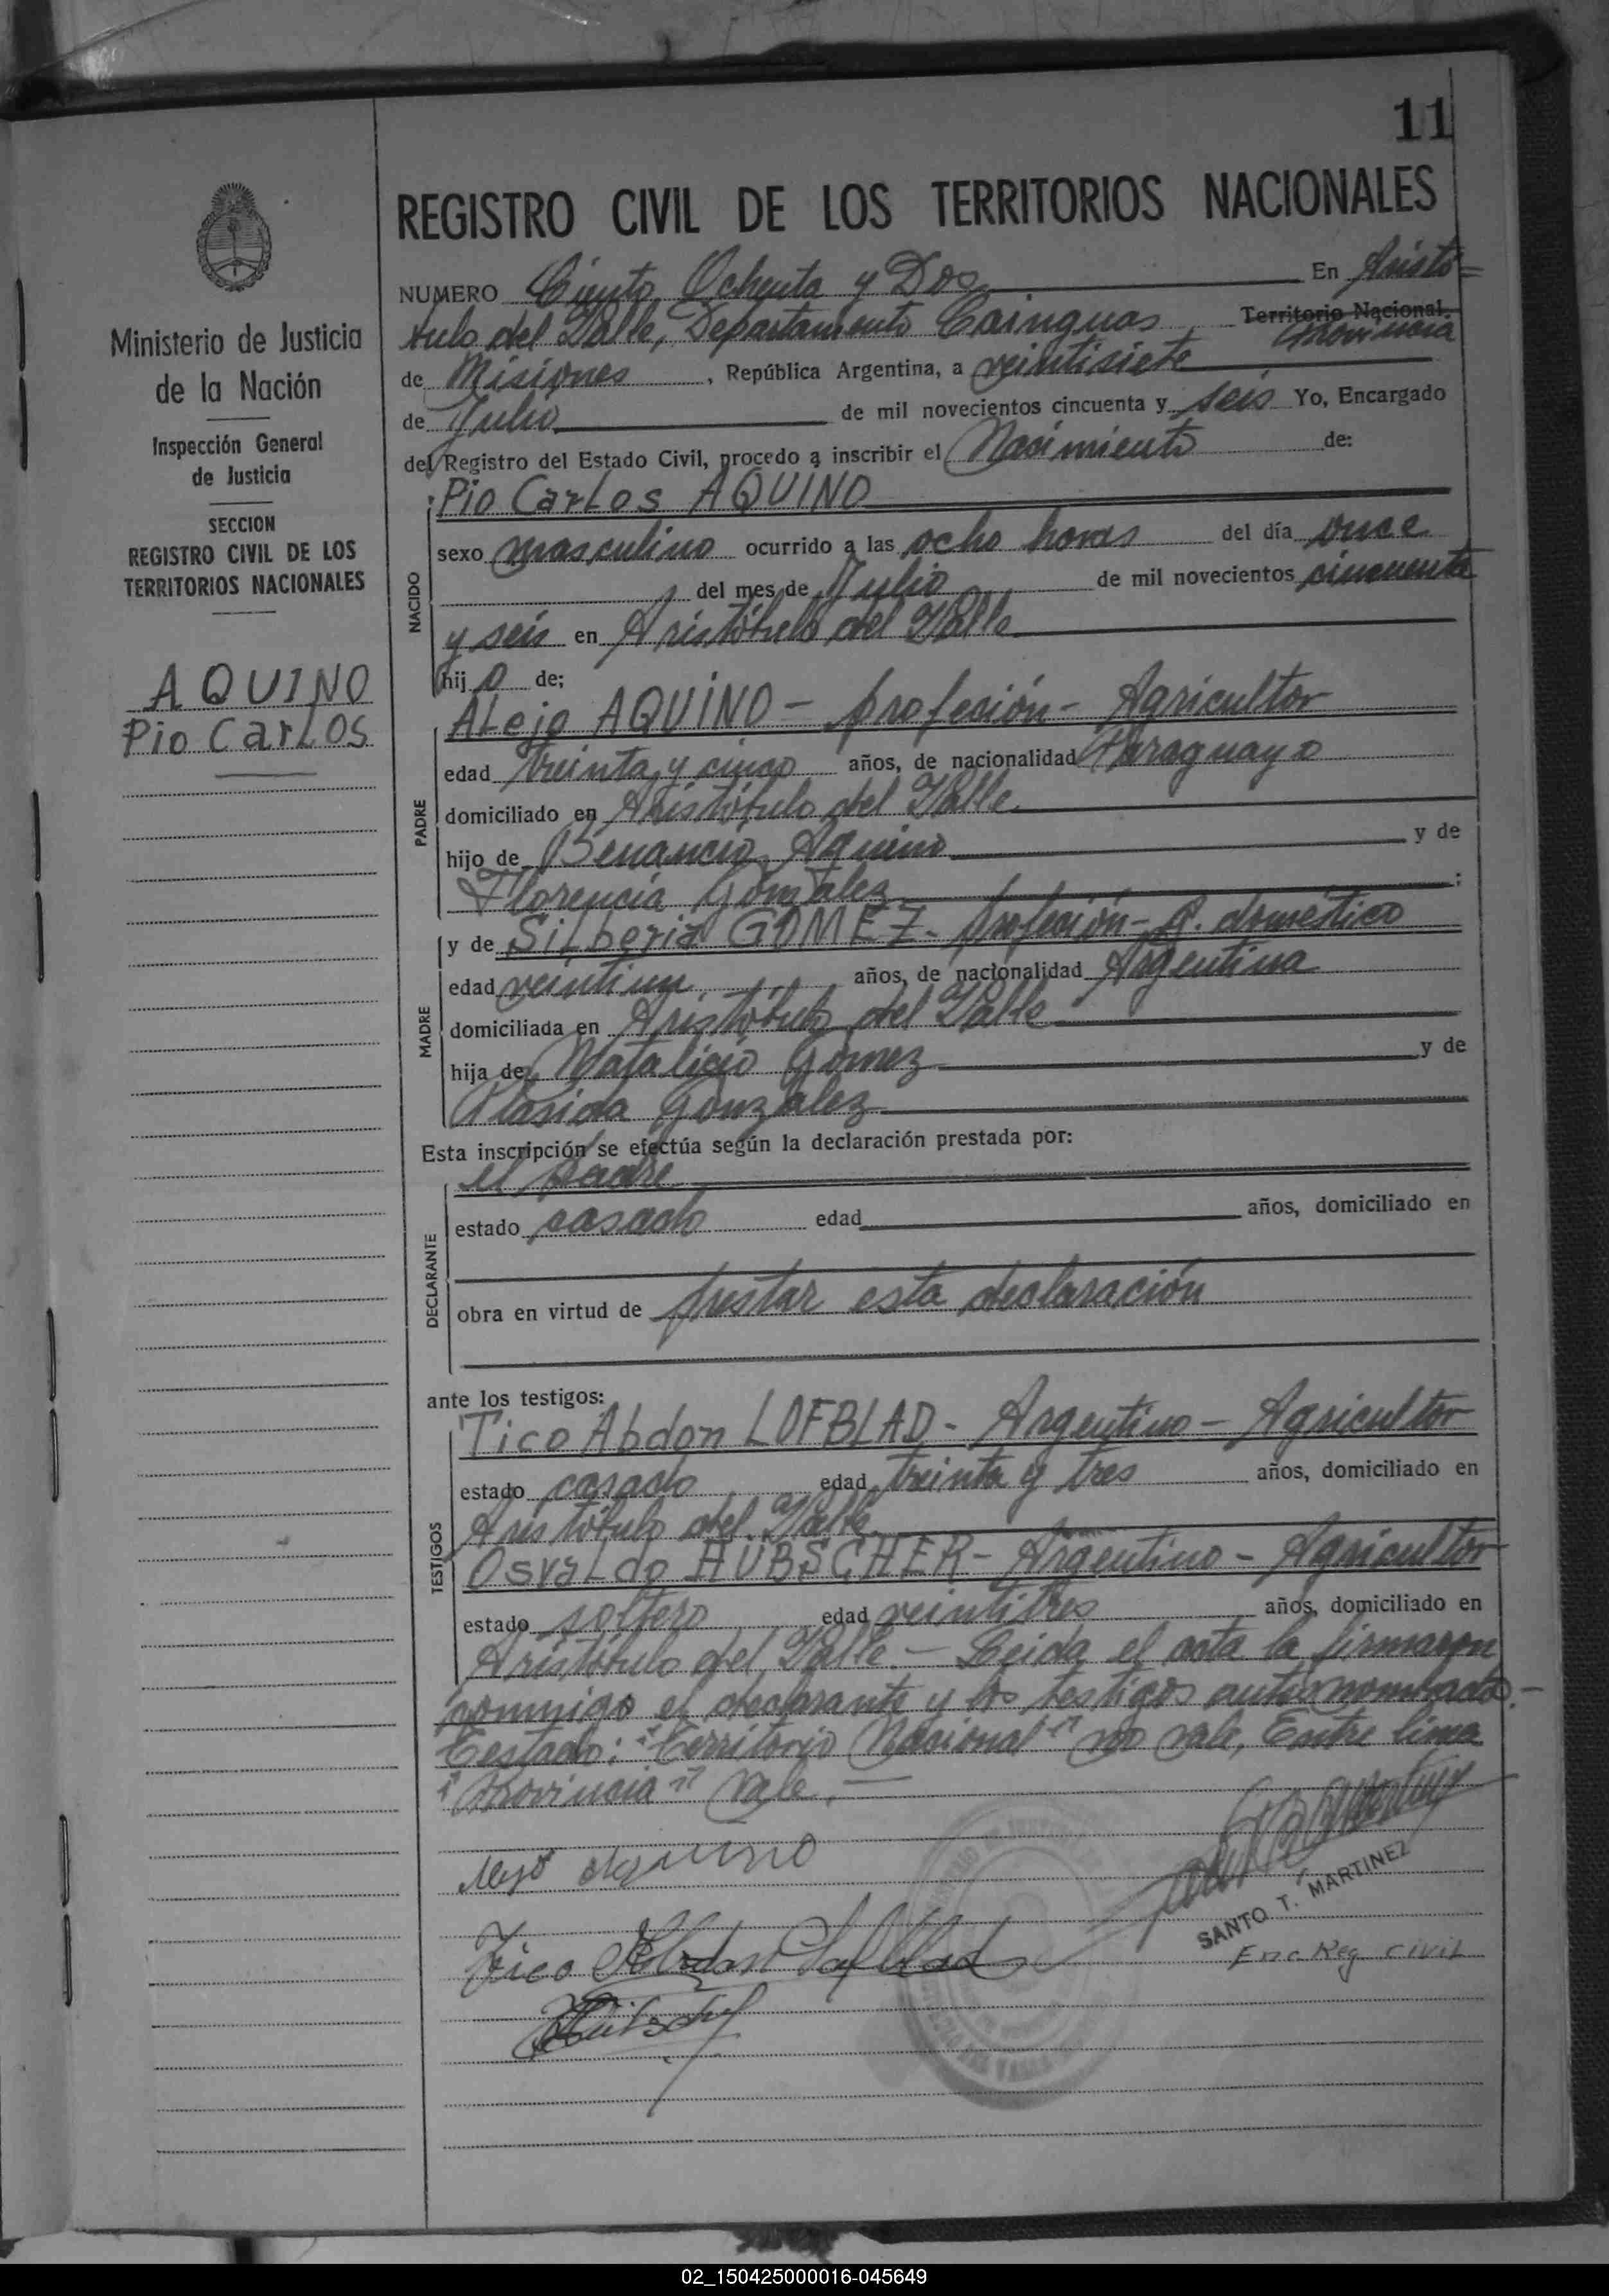 11
REGISTRO CIVIL DE LOS TERRITORIOS NACIONALES
NUMERO Ciento Ochenta y Dos En Aristó=
tulo del Valle, Departamento Cainguas Territorio Nacional.
Provincia
de Misiones, República Argentina, a veintisiete
de Julio de mil novecientos cincuenta y seis Yo, Encargado
del Registro del Estado Civil, procedo a inscribir el Nacimiento de:
Pio Carlos AQUINO
NACIDO
sexo masculino ocurrido a las ocho horas del día once
del mes de Julio de mil novecientos cincuenta
y seis en Aristóbulo del Valle
hijo de;
PADRE
Alejo AQUINO - profesión - Agricultor
edad treinta y cinco años, de nacionalidad Paraguayo
domiciliado en Aristóbulo del Valle
hijo de Benancio Aquino y de
Florencia González ;
MADRE
y de Silberia GOMEZ - profesión - Q. doméstico
edad veintiun años, de nacionalidad Argentina
domiciliada en Aristóbulo del Valle
hija de Natalicio Gomez y de
Plasida González
Esta inscripción se efectúa según la declaración prestada por:
DECLARANTE
el padre
estado casado edad años, domiciliado en
obra en virtud de prestar esta declaración
ante los testigos:
TESTIGOS
Tico Abdon LOFBLAD - Argentino - Agricultor
estado casado edad treinta y tres años, domiciliado en
Aristóbulo del Valle
Osvaldo HÜBSCHER - Argentino - Agricultor
estado soltero edad veintitres años, domiciliado en
Aristóbulo del Valle. - Leida el acta la firmaron
conmigo el declarante y los testigos antesnombrados. -
Testado: "Territorio Nacional" no vale, Entre linea
"Provincia" Vale. -
Alejo Aquino
Tico Abdon Lofblad
SANTO T. MARTINEZ
Enc Reg Civil
Ministerio de Justicia
de la Nación
Inspección General
de Justicia
SECCION
REGISTRO CIVIL DE LOS
TERRITORIOS NACIONALES
AQUINO
Pio Carlos
02_150425000016-045649